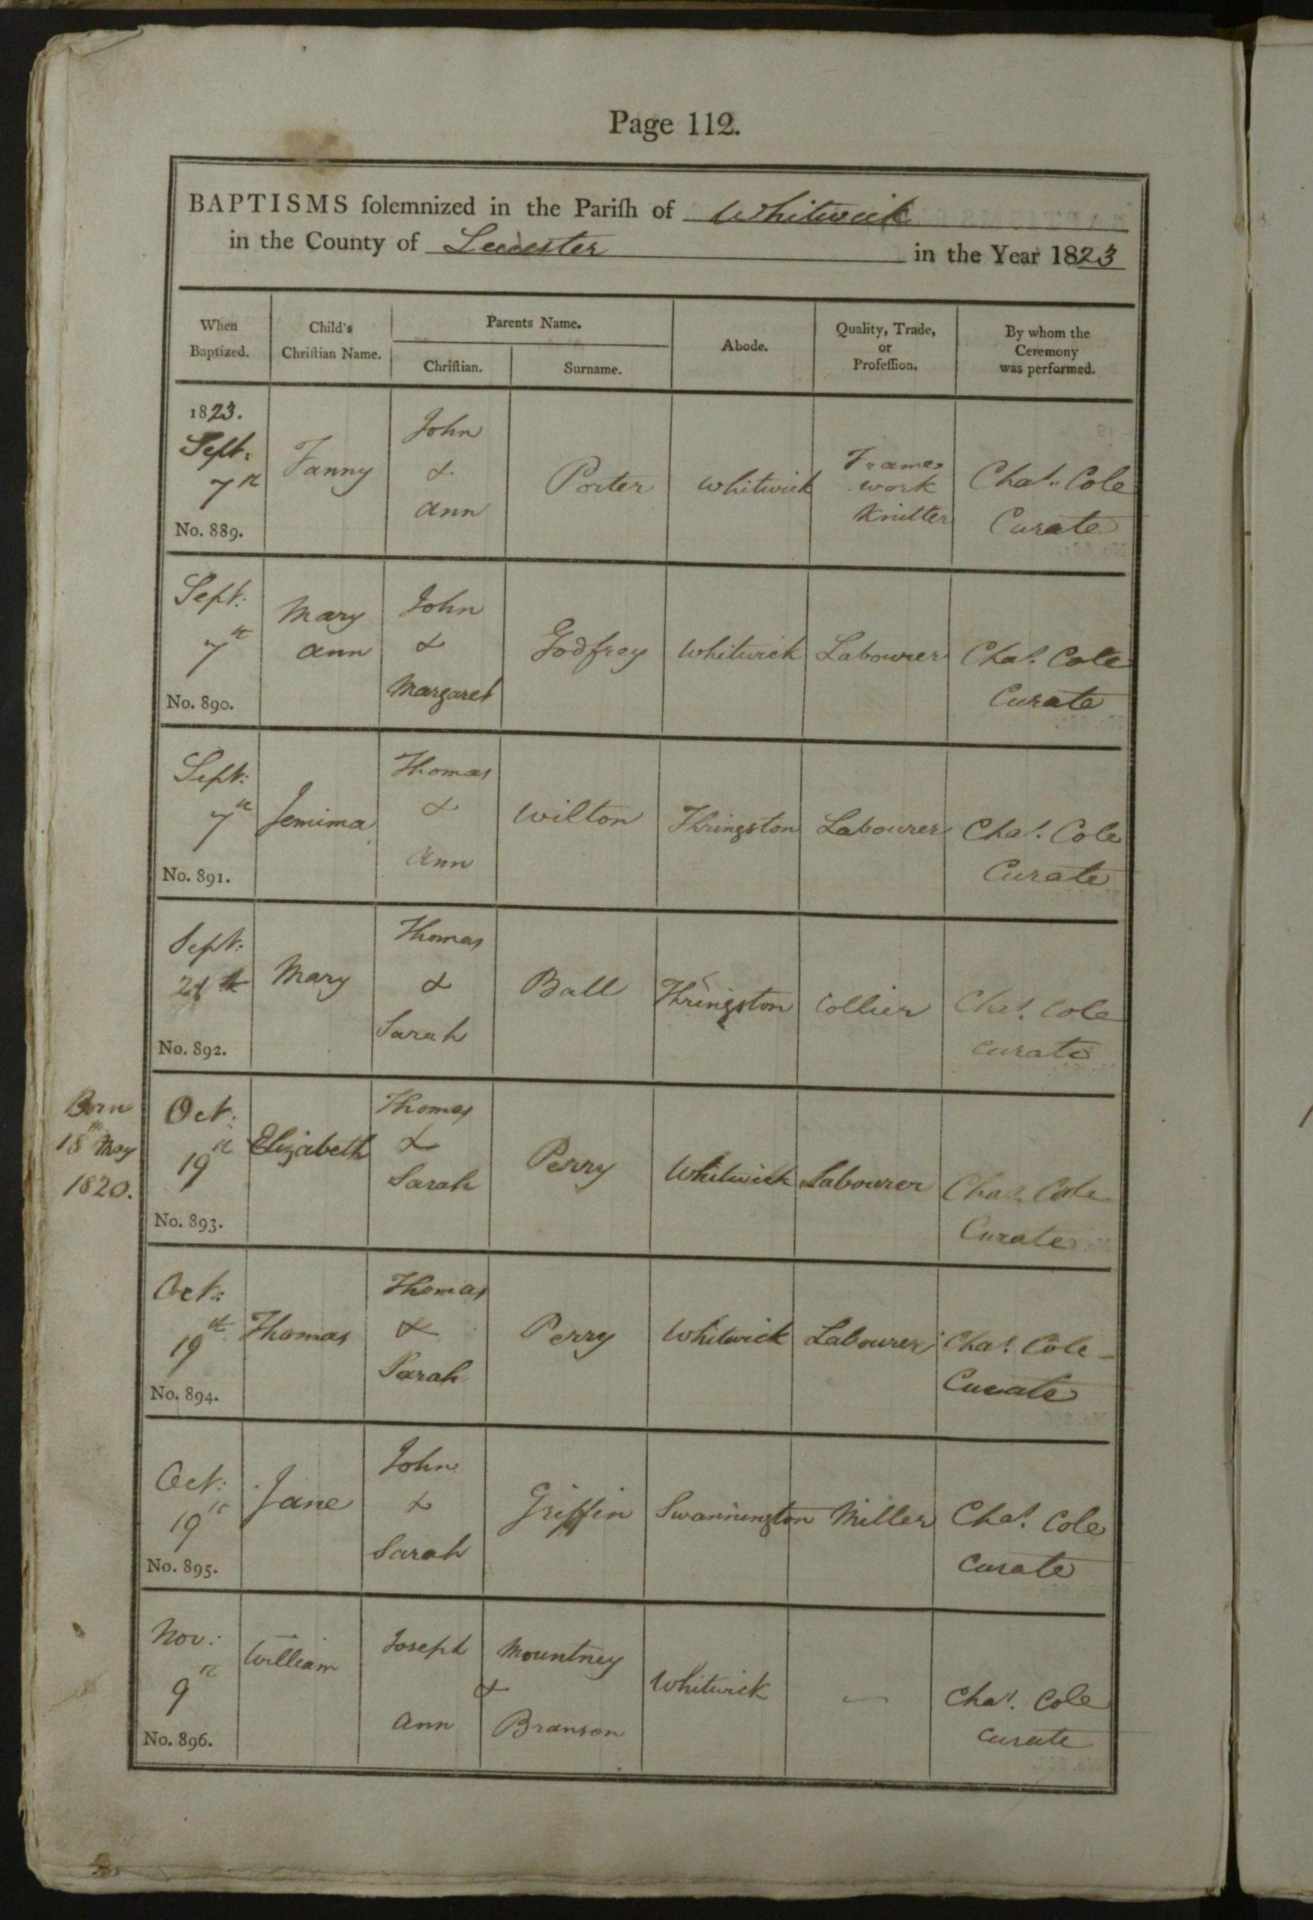 Page 112.
BAPTISMS ſolemnized in the Pariſh of Whitwick
in the County of Leicester in the Year 1823
When Baptized.
Child's Chriſtian Name.
Parents Name.
Chriſtian.
Surname.
Abode.
Quality, Trade, or Profeſſion.
By whom the Ceremony was performed.
1823. Sept: 7th No. 889.
Fanny
John & Ann
Porter
Whitwick
Frame work Knitter
Chas. Cole Curate
Sept: 7th No. 890.
Mary Ann
John & Margaret
Godfrey
Whitwick
Labourer
Chas. Cole Curate
Sept: 7th No. 891.
Jemima
Thomas & Ann
Wilton
Thringston
Labourer
Chas. Cole Curate
Sept: th No. 892.
Mary
Thomas & Sarah
Ball
Thringston
Collier
Chas. Cole Curate
Born 18th May 1820.
Oct: 19th No. 893.
Elizabeth
Thomas & Sarah
Perry
Whitwick
Labourer
Chas. Cole Curate
Oct: 19th No. 894.
Thomas
Thomas & Sarah
Perry
Whitwick
Labourer
Chas. Cole Curate
Oct: 19th No. 895.
Jane
John & Sarah
Griffin
Swannington
Miller
Chas. Cole Curate
Nov: 9th No. 896.
William
Joseph Mountney
&
Ann Branson
Whitwick
—
Chas. Cole Curate